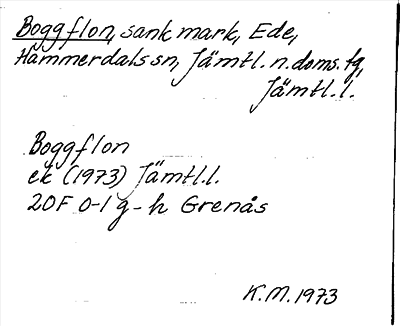 Boggflon, sank mark, Ede,
Hammerdals sn, Jämtl. n. doms. tg,
Jämtl. l.
Boggflon
ek (1973) Jämtl.l.
20F 0-1 g-h Grenås
K.M. 1973